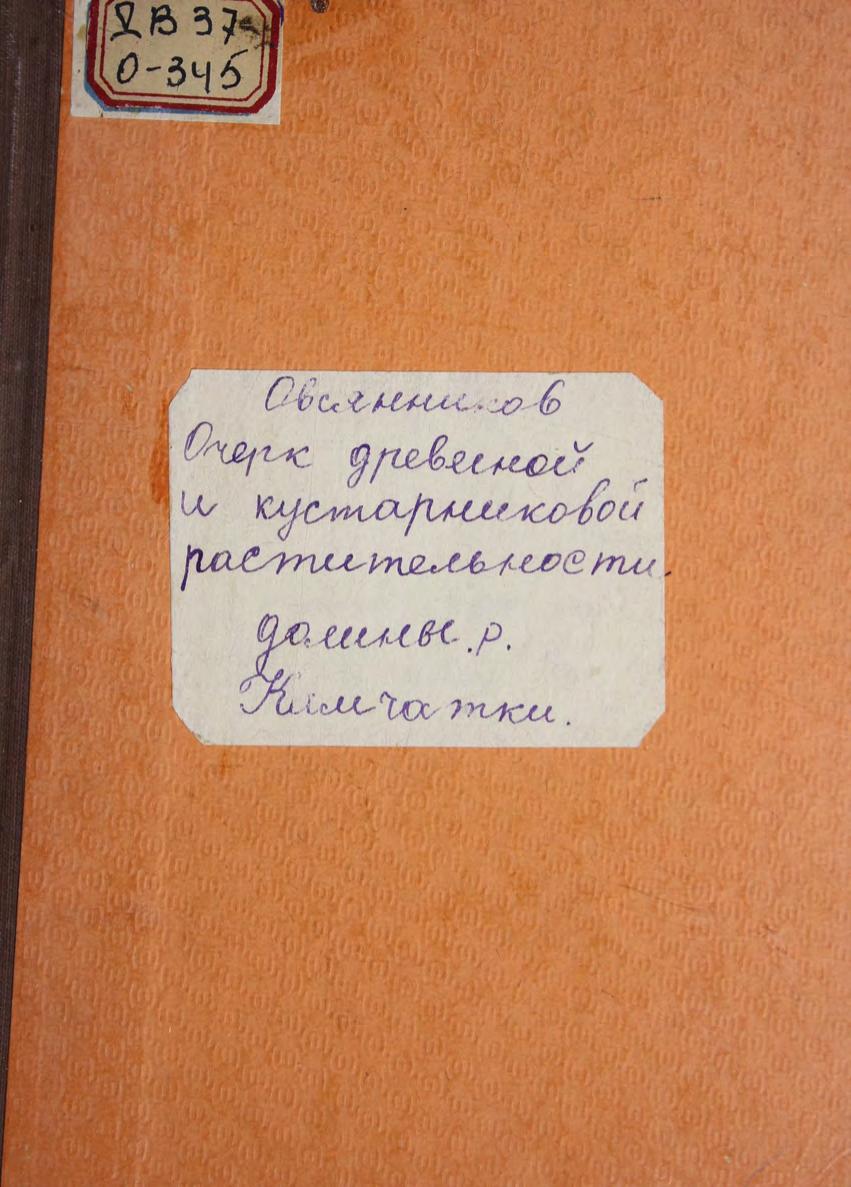 V В 37
О-345
Овсянников
Очерк древесной
и кустарниковой
растительности
долины р.
Камчатки.